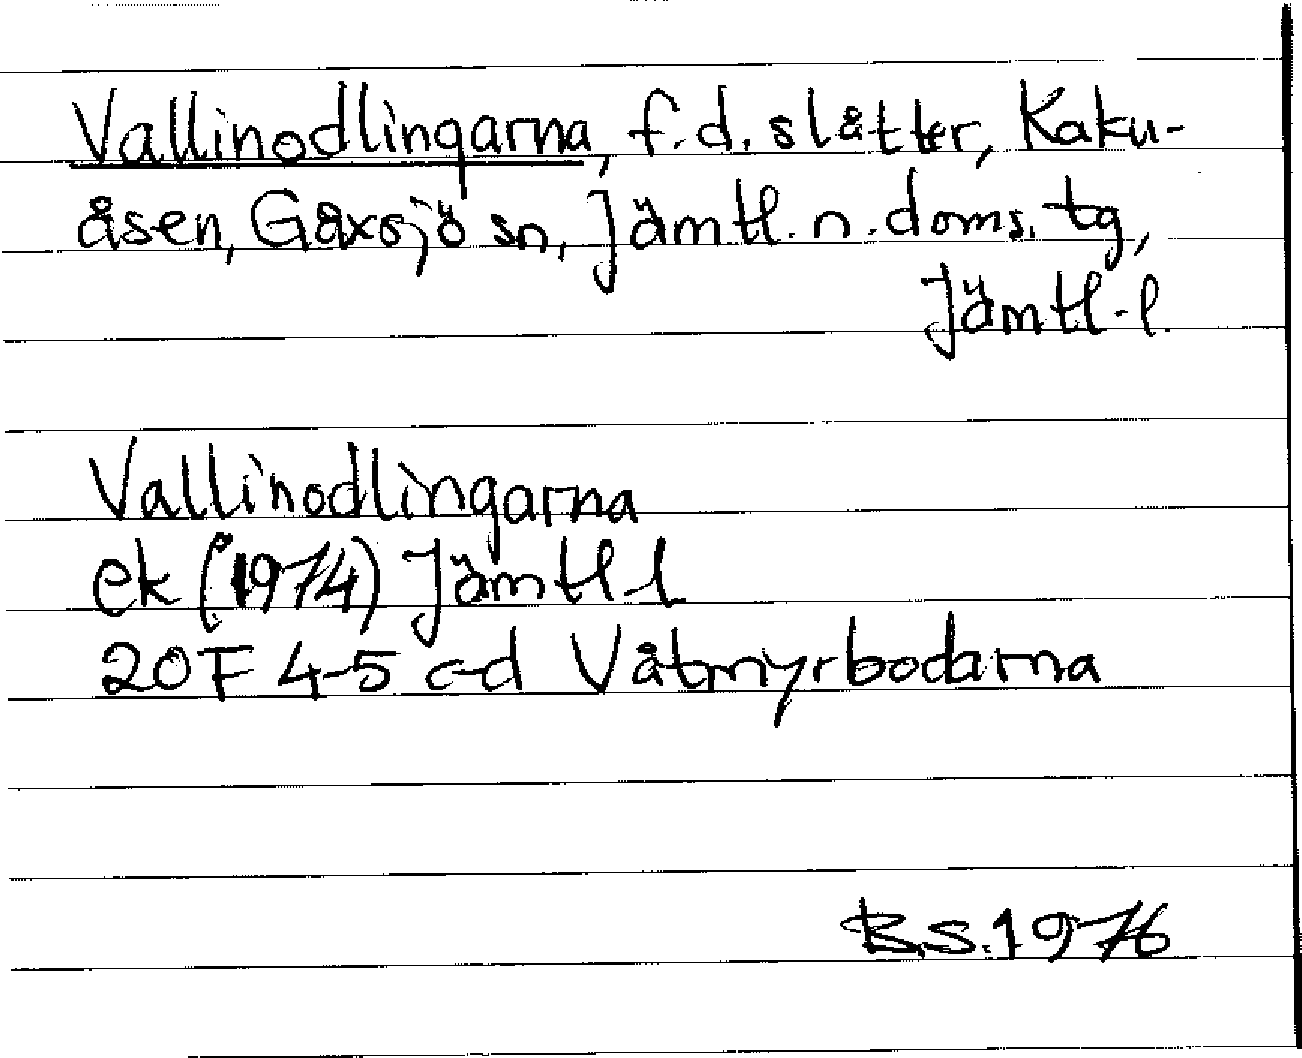 Vallinodlingarna, f.d. slåtter, Kaku-
åsen, Gåxsjö sn, Jämtl. n. doms. tg,
Jämtl. l.
Vallinodlingarna
ek (1974) Jämtl. l
20F 4-5 c-d Våtmyrbodarna
B.S. 1976